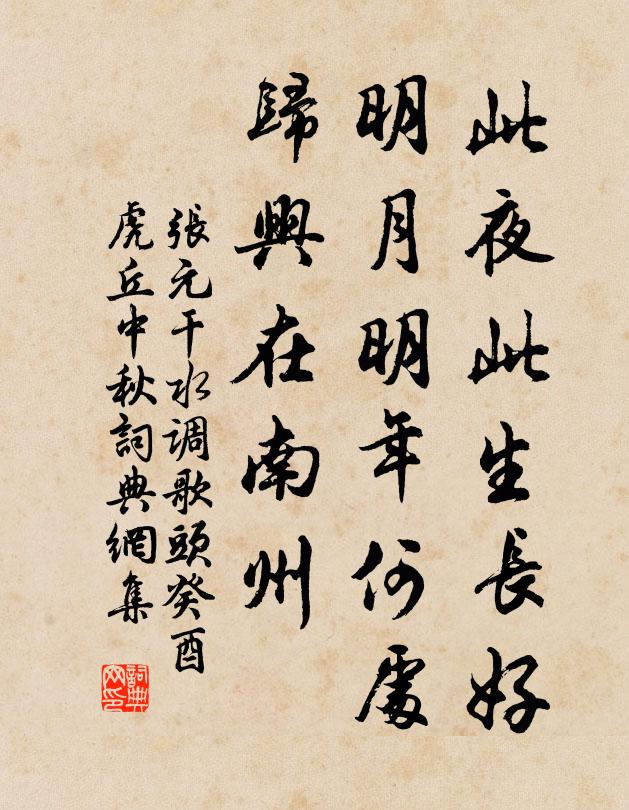 此夜此生長好
明月明年何處
歸興在南州
張元干水调歌頭癸酉
虎丘中秋詞典網集
詞典网印